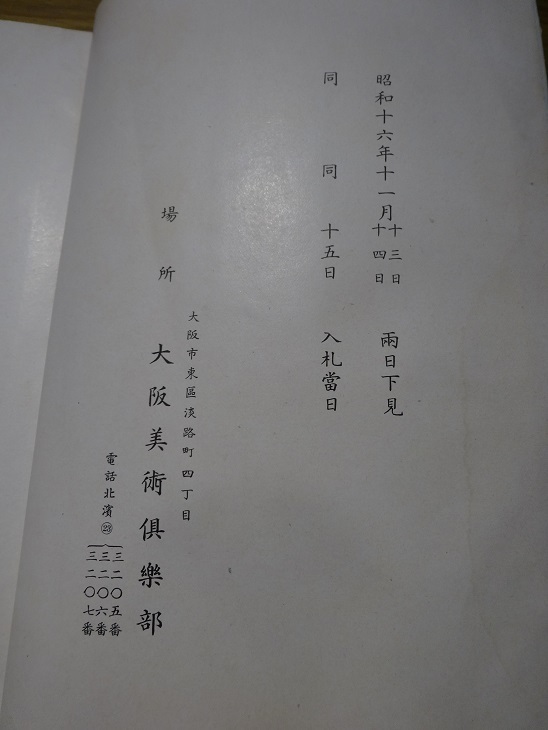 昭和十六年十一月 十三日 十四日 兩日下見
同 同 十五日 入札當日
場所
大阪市東區淡路町四丁目
大阪美術俱樂部
電話北濱㉓
三二〇五番
三二〇六番
三二〇七番